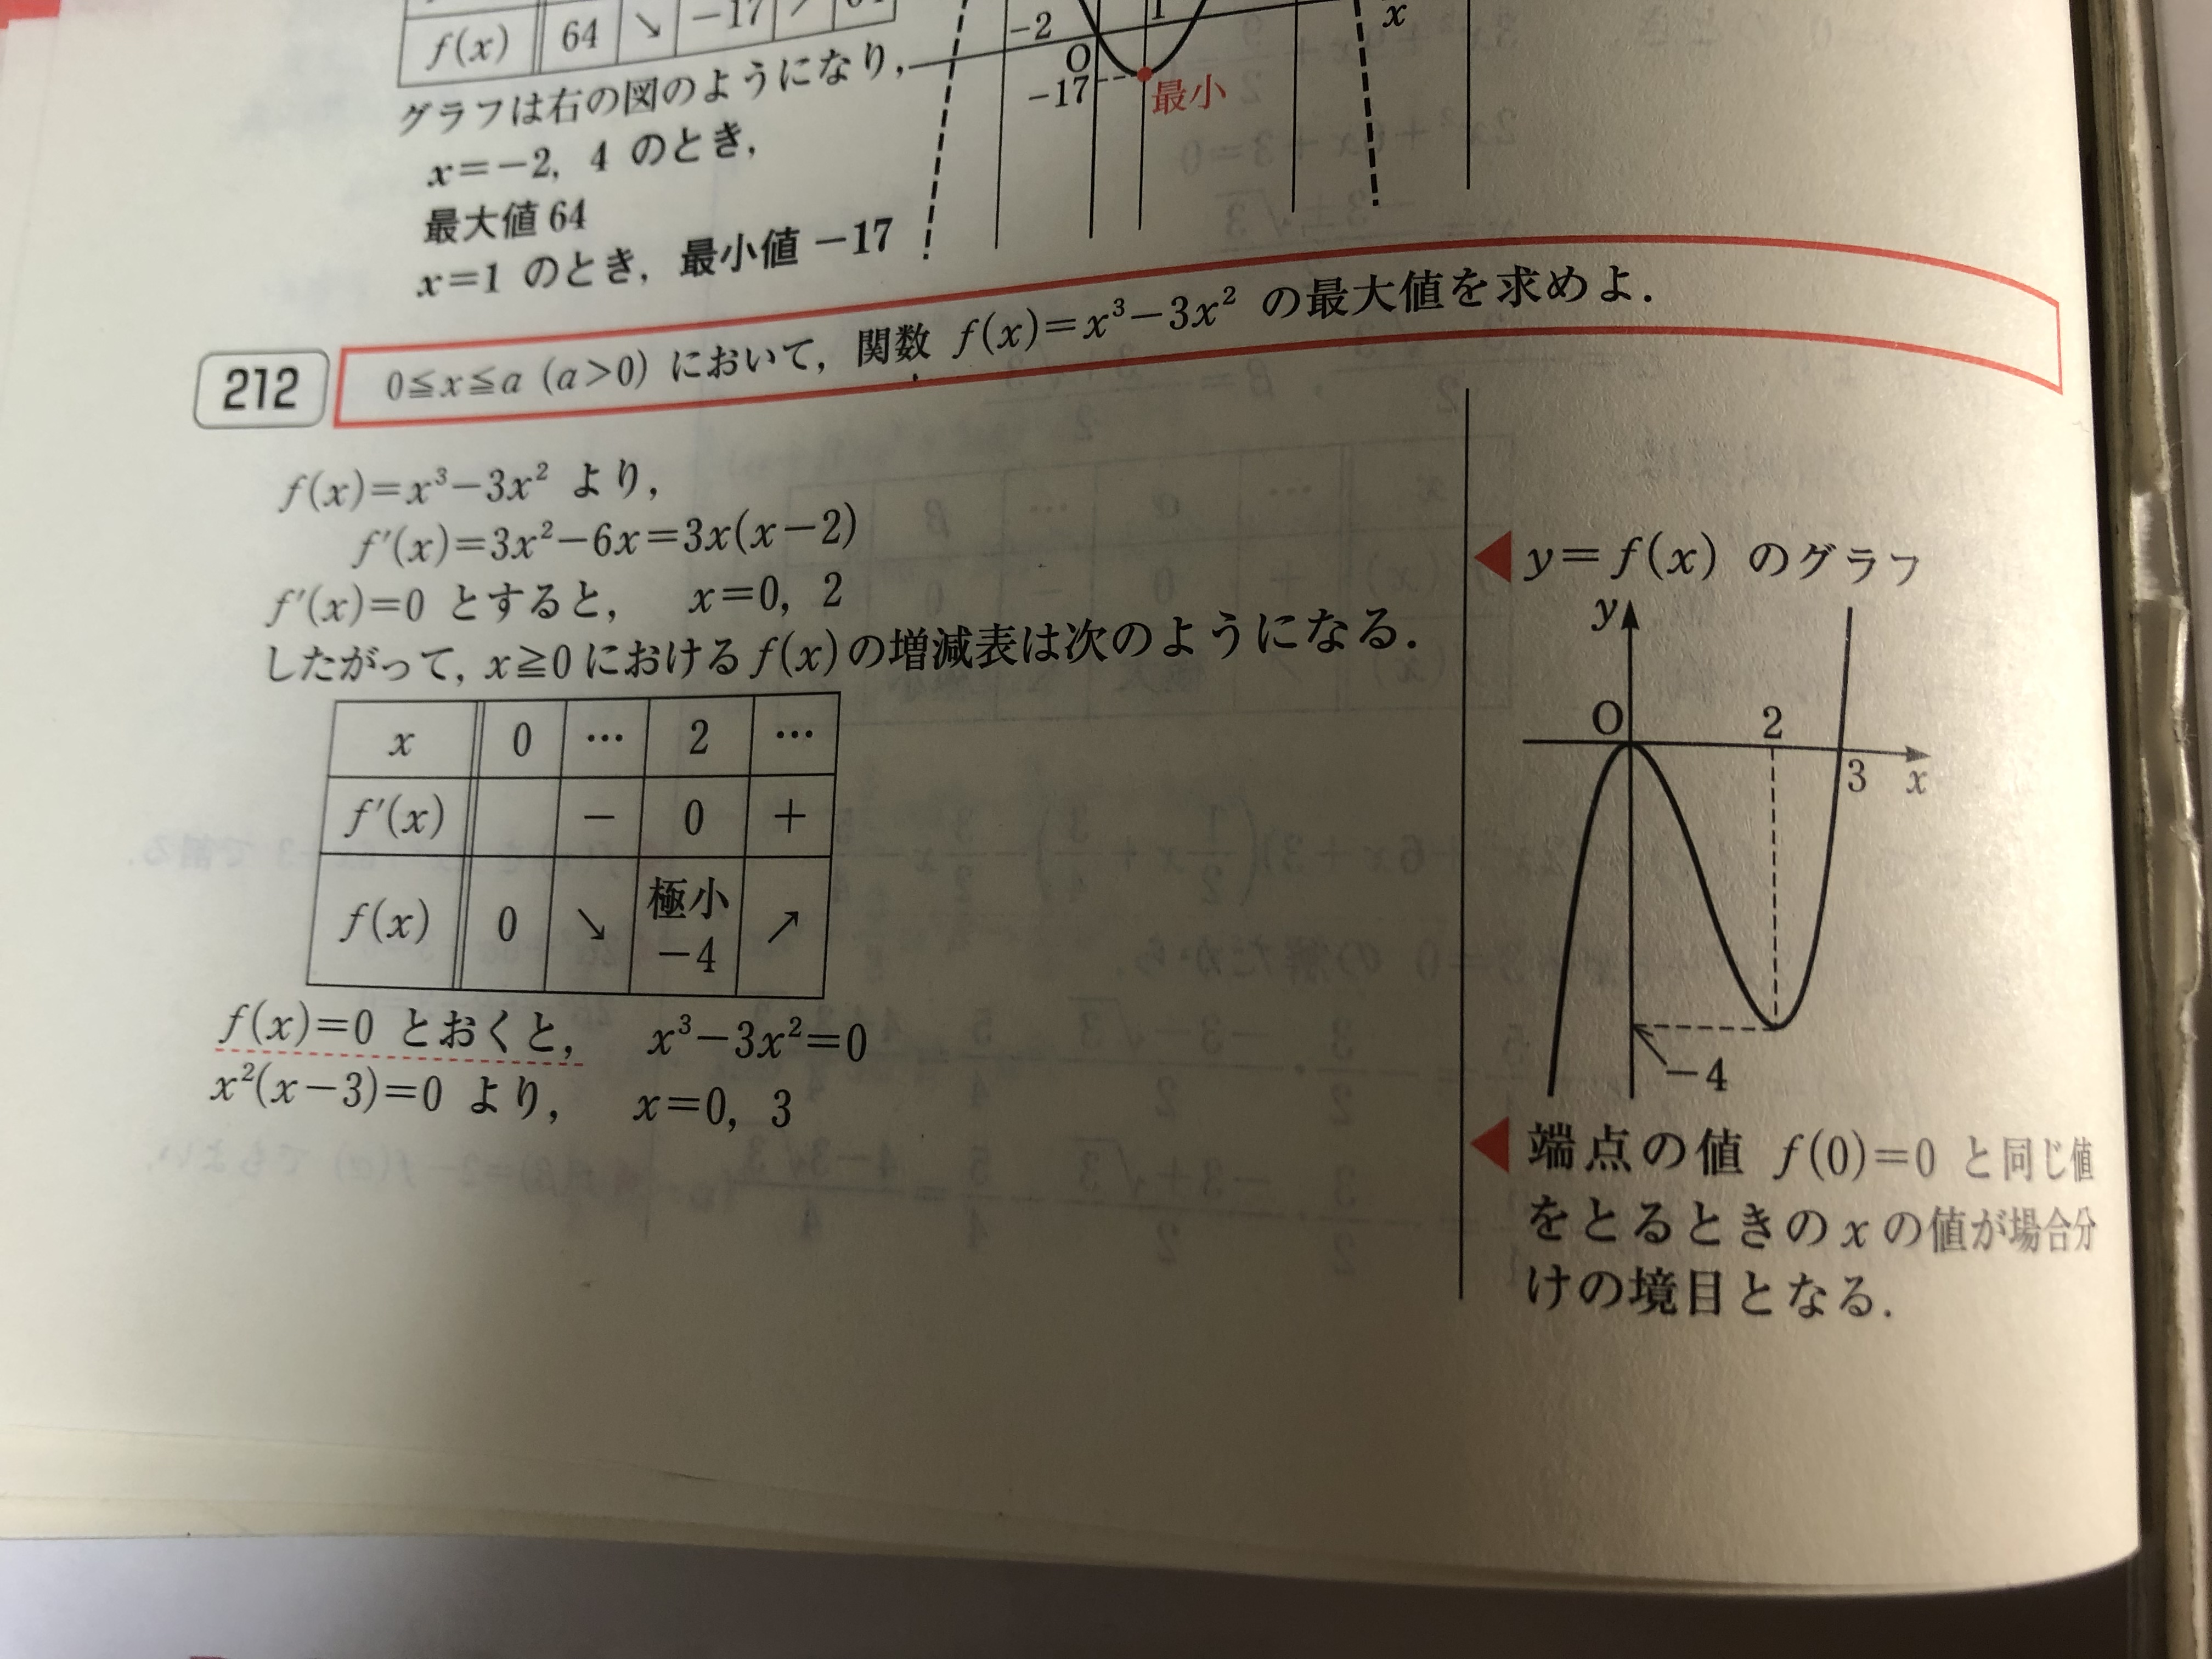 f(x) 64 ↘ −17
−2
1
x
O
−17
最小
グラフは右の図のようになり,
x=−2, 4 のとき,
最大値 64
x=1 のとき, 最小値 −17
212 0≦x≦a (a>0) において, 関数 f(x)=x³−3x² の最大値を求めよ.
f(x)=x³−3x² より,
f′(x)=3x²−6x=3x(x−2)
f′(x)=0 とすると, x=0, 2
したがって, x≧0 における f(x) の増減表は次のようになる.
x 0 … 2 …
f′(x) − 0 +
f(x) 0 ↘ 極小 −4 ↗
f(x)=0 とおくと, x³−3x²=0
x²(x−3)=0 より, x=0, 3
◀ y=f(x) のグラフ
y
O
2
3
x
−4
◀ 端点の値 f(0)=0 と同じ値
をとるときの x の値が場合分
けの境目となる.